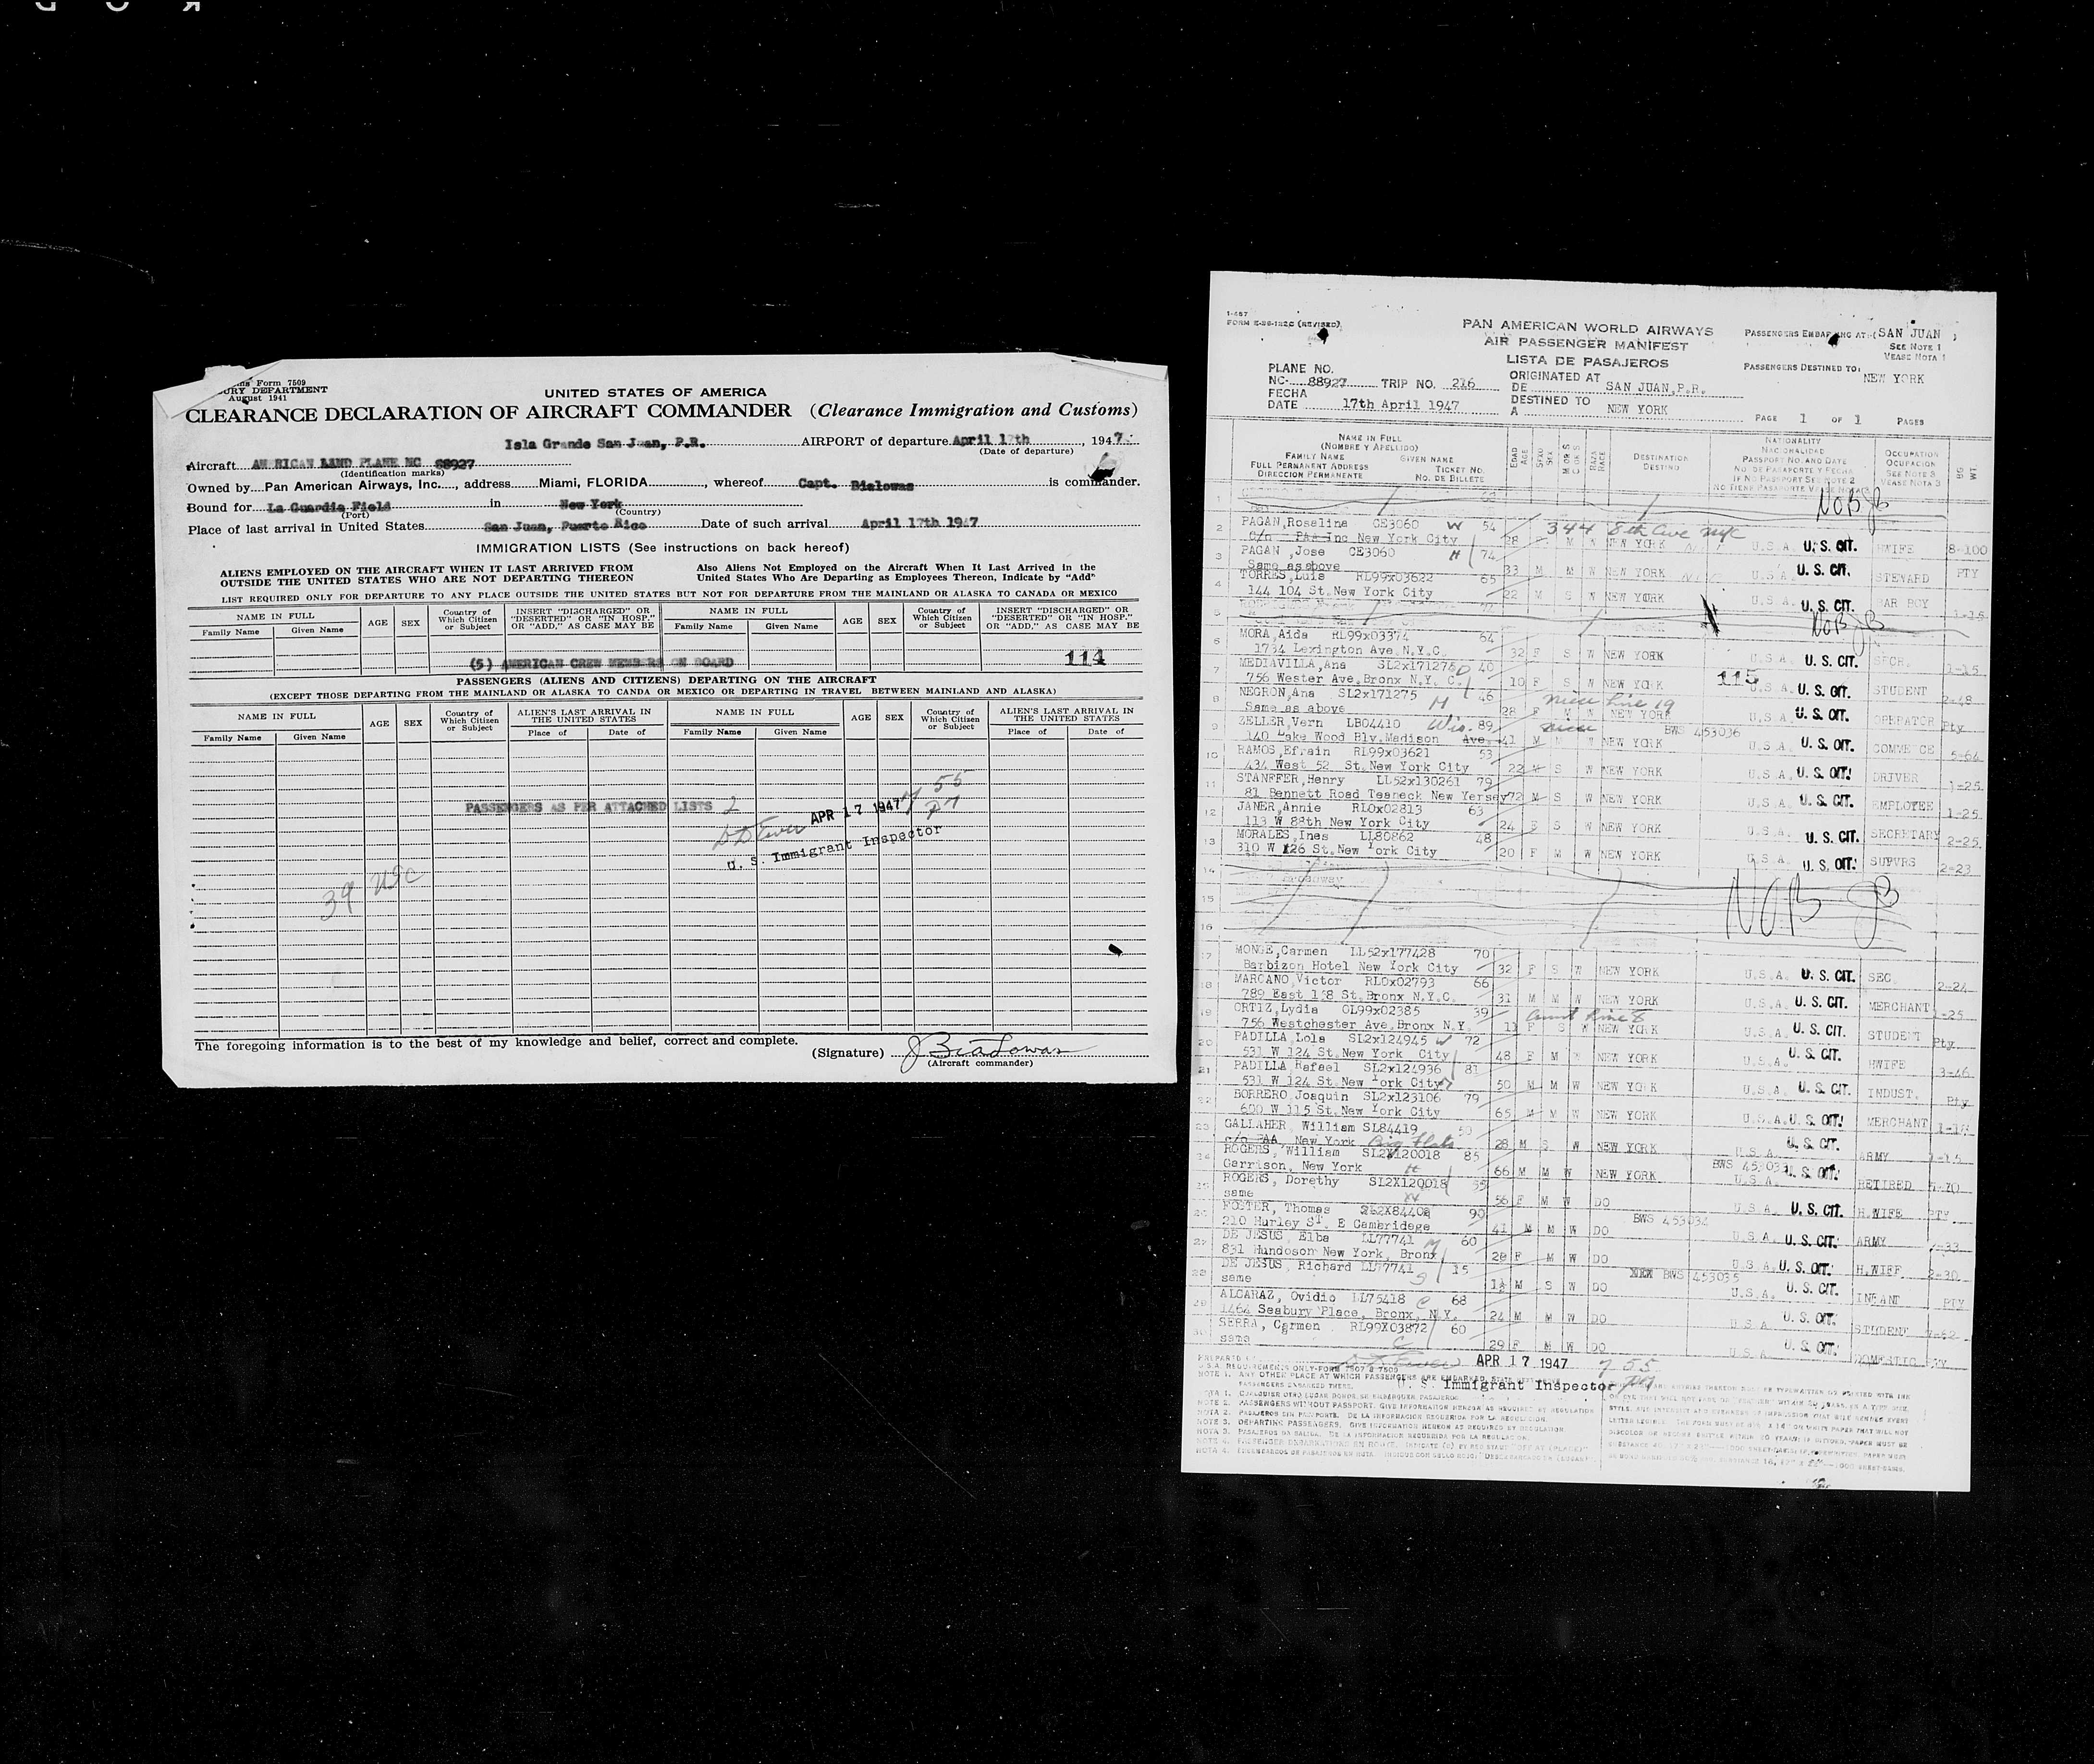 Form 7509
TREASURY DEPARTMENT
August 1941
UNITED STATES OF AMERICA
CLEARANCE DECLARATION OF AIRCRAFT COMMANDER (Clearance Immigration and Customs)
Isla Grande San Juan, P.R. AIRPORT of departure April 17th, 1947
(Date of departure)
Aircraft AMERICAN LAND PLANE NC 88927
(Identification marks)
Owned by Pan American Airways, Inc., address Miami, FLORIDA, whereof Capt. Bialowas is commander.
Bound for La Guardia Field in New York
(Port) (Country)
Place of last arrival in United States San Juan, Puerto Rico Date of such arrival April 17th 1947
IMMIGRATION LISTS (See instructions on back hereof)
ALIENS EMPLOYED ON THE AIRCRAFT WHEN IT LAST ARRIVED FROM
OUTSIDE THE UNITED STATES WHO ARE NOT DEPARTING THEREON
Also Aliens Not Employed on the Aircraft When It Last Arrived in the
United States Who Are Departing as Employees Thereon, Indicate by "Add"
LIST REQUIRED ONLY FOR DEPARTURE TO ANY PLACE OUTSIDE THE UNITED STATES BUT NOT FOR DEPARTURE FROM THE MAINLAND OR ALASKA TO CANADA OR MEXICO
NAME IN FULL AGE SEX Country of Which Citizen or Subject INSERT "DISCHARGED" OR "DESERTED" OR "IN HOSP." OR "ADD," AS CASE MAY BE NAME IN FULL AGE SEX Country of Which Citizen or Subject INSERT "DISCHARGED" OR "DESERTED" OR "IN HOSP." OR "ADD," AS CASE MAY BE
Family Name Given Name Family Name Given Name
(5) AMERICAN CREW MEMBERS ON BOARD 114
PASSENGERS (ALIENS AND CITIZENS) DEPARTING ON THE AIRCRAFT
(EXCEPT THOSE DEPARTING FROM THE MAINLAND OR ALASKA TO CANDA OR MEXICO OR DEPARTING IN TRAVEL BETWEEN MAINLAND AND ALASKA)
NAME IN FULL AGE SEX Country of Which Citizen or Subject ALIEN'S LAST ARRIVAL IN THE UNITED STATES NAME IN FULL AGE SEX Country of Which Citizen or Subject ALIEN'S LAST ARRIVAL IN THE UNITED STATES
Family Name Given Name Place of Date of Family Name Given Name Place of Date of
PASSENGERS AS PER ATTACHED LISTS 2
APR 17 1947
U. S. Immigrant Inspector
39 USC
The foregoing information is to the best of my knowledge and belief, correct and complete.
(Signature) J Bialowas
(Aircraft commander)
PAN AMERICAN WORLD AIRWAYS
AIR PASSENGER MANIFEST
LISTA DE PASAJEROS
PASSENGERS EMBARKING AT: (SAN JUAN)
SEE NOTE 1
VEASE NOTA 1
PASSENGERS DESTINED TO: NEW YORK
PLANE NO.
NC- 88927 TRIP NO. 216
FECHA
DATE 17th April 1947
ORIGINATED AT
DE SAN JUAN, P.R.
DESTINED TO
A NEW YORK
PAGE 1 OF 1 PAGES
NAME IN FULL
(NOMBRE Y APELLIDO)
FAMILY NAME GIVEN NAME
FULL PERMANENT ADDRESS TICKET NO.
DIRECCION PERMANENTE NO. DE BILLETE
EDAD AGE SEXO SEX RAZA RACE DESTINATION DESTINO
NATIONALITY
NACIONALIDAD
PASSPORT NO. AND DATE
NO. DE PASAPORTE Y FECHA
IF NO PASSPORT SEE NOTE 2
OCCUPATION
OCUPACION
SEE NOTE 3
VEASE NOTA 3
1 NOB JB
2 PAGAN, Rosalina CE3060 W 54 344 8th Ave NYC
c/o PAA Inc New York City 28 F M W NEW YORK U.S.A. U. S. CIT. HWIFE 8-100
3 PAGAN, Jose CE3060 H 74
Same as above 33 M M W NEW YORK U.S.A. U. S. CIT. STEWARD PTY
4 TORRES, Luis RL99x03622 65
144 104 St. New York City 22 M S W NEW YORK U.S.A. U. S. CIT. BAR BOY 1-15
5 NOB JB
6 MORA, Aida RL99x03374 64
1734 Lexington Ave. N.Y.C. 32 F S W NEW YORK U.S.A. U. S. CIT. SECR. 1-15
7 MEDIAVILLA, Ana SL2x171276 D 40 115
756 Wester Ave. Bronx N.Y. C. 10 F S W NEW YORK U.S.A. U. S. CIT. STUDENT 2-48
8 NEGRON, Ana SL2x171275 H 46 niece line 19
Same as above 28 F M W NEW YORK U. S. CIT. OPERATOR Pty
9 ZELLER, Vern LB04410 Wis. 89 BWS 453036
140 Lake Wood Blv. Madison Ave. 41 M W NEW YORK U.S.A. U. S. CIT. COMMERCE 5-64
10 RAMOS, Efrain RL99x03621 53
434 West 52 St. New York City 22 S W NEW YORK U.S.A. U. S. CIT. DRIVER 1-25
11 STANFFER, Henry LL52x130261 79
81 Bennett Road Teaneck New Yersey 72 M S W NEW YORK U.S.A. U. S. CIT. EMPLOYEE 1-25
12 JANER, Annie RLOx02813 63
113 W 88th New York City 24 F S W NEW YORK U.S.A. U. S. CIT. SECRETARY 2-25
13 MORALES, Ines LL80862 48
310 W 126 St. New York City 20 F M W NEW YORK U.S.A. U. S. CIT. SUPVRS 2-23
14
15 NOB JB
16
17 MONGE, Carmen LL52x177428 70
Barbizon Hotel New York City 32 F S W NEW YORK U.S.A. U. S. CIT. SEC. 2-24
18 MARCANO, Victor RLOx02793 66
789 East 158 St. Bronx N.Y.C. 31 M M W NEW YORK U.S.A. U. S. CIT. MERCHANT 1-25
19 ORTIZ, Lydia OL99x02385 39 aunt line 8
756 Westchester Ave. Bronx N.Y. 11 F S W NEW YORK U.S.A. U. S. CIT. STUDENT Pty.
20 PADILLA, Lola SL2x124945 W 72
531 W 124 St. New York City 48 F M W NEW YORK U.S.A. U. S. CIT. HWIFE 3-46
21 PADILLA Rafael SL2x124936 81
531 W 124 St. New York City 50 M M W NEW YORK U.S.A. U. S. CIT. INDUST. Pty
22 BORRERO, Joaquin SL2x123106 79
600 W 115 St. New York City 65 M M W NEW YORK U.S.A. U. S. CIT. MERCHANT 1-18
23 GALLAHER, William SL84419 50
c/o PAA, New York Big Flats 28 M S W NEW YORK U.S.A. U. S. CIT. ARMY 1-15
24 ROGERS, William SL2X120018 85 BWS 453033
Garrison, New York H 66 M M W NEW YORK U.S.A. U. S. CIT. RETIRED
25 ROGERS, Dorethy SL2X120018 55
same W 56 F M W DO U.S.A. U. S. CIT. H.WIFE PTY
26 FOSTER, Thomas 90 BWS 453034
210 Hurley St. E Cambridege 41 M M W DO U.S.A. U. S. CIT. ARMY
27 DE JESUS, Elba LL77741 M 60
831 Hundoson New York, Bronx 28 F M W DO U.S.A. U. S. CIT. H.WIFE 2-30
28 DE JESUS, Richard LL77741 S 15 BWS 453035
same 1½ M S W DO U.S.A. U. S. CIT. INFANT PTY
29 ALCARAZ, Ovidio LL75418 C 68
1464 Seabury Place, Bronx, N.Y. 24 M M W DO U.S.A. U. S. CIT. STUDENT
30 SERRA, Carmen RL99X03872 60
same 29 F M W DO U.S.A. U. S. CIT. DOMESTIC
APR 17 1947 7 55
U. S. Immigrant Inspector PM
NOTE 1. ANY OTHER PLACE AT WHICH PASSENGERS ARE EMBARKED
PASSENGERS EMBARKED THERE.
NOTE 2. PASSENGERS WITHOUT PASSPORT, GIVE INFORMATION HEREON AS REQUIRED BY REGULATION
NOTA 2. PASAJEROS SIN PASAPORTE. DE LA INFORMACION REQUERIDA POR LA REGULACION.
NOTE 3. DEPARTING PASSENGERS, GIVE INFORMATION HEREON AS REQUIRED BY REGULATION
NOTA 3. PASAJEROS DE SALIDA. DE LA INFORMACION REQUERIDA POR LA REGULACION.